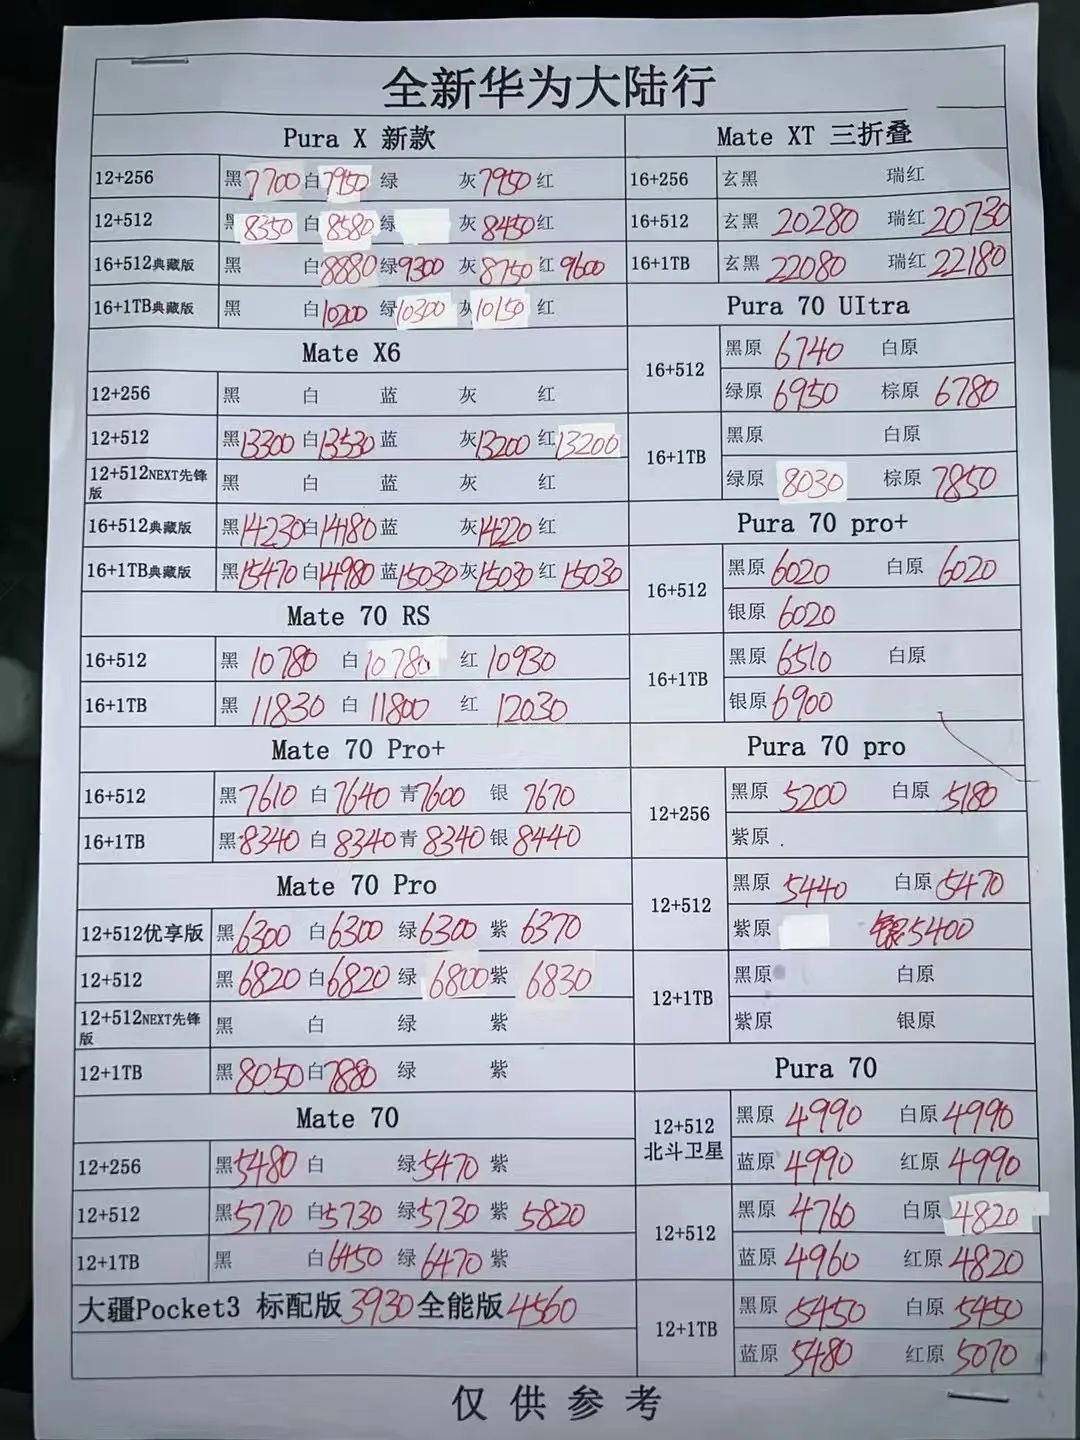 全新华为大陆行
Pura X 新款
12+256 黑7700 白7950 绿 灰7950 红
12+512 黑8350 白8580 绿 灰8450 红
16+512典藏版 黑 白8880 绿9300 灰8750 红9600
16+1TB典藏版 黑 白10200 绿10300 灰10150 红
Mate X6
12+256 黑 白 蓝 灰 红
12+512 黑13300 白13530 蓝 灰13200 红13200
12+512NEXT先锋版 黑 白 蓝 灰 红
16+512典藏版 黑14230 白14180 蓝 灰14220 红
16+1TB典藏版 黑15470 白14980 蓝15030 灰15030 红15030
Mate 70 RS
16+512 黑 10780 白 10780 红 10930
16+1TB 黑 11830 白 11800 红 12030
Mate 70 Pro+
16+512 黑7610 白7640 青7600 银 7670
16+1TB 黑8340 白8340 青8340 银8440
Mate 70 Pro
12+512优享版 黑6300 白6300 绿6300 紫 6370
12+512 黑6820 白6820 绿 6800 紫 6830
12+512NEXT先锋版 黑 白 绿 紫
12+1TB 黑8050 白7880 绿 紫
Mate 70
12+256 黑5480 白 绿5470 紫
12+512 黑5770 白5730 绿5730 紫 5820
12+1TB 黑 白6450 绿6470 紫
大疆Pocket3 标配版3930 全能版4560
Mate XT 三折叠
16+256 玄黑 瑞红
16+512 玄黑 20280 瑞红20730
16+1TB 玄黑 22080 瑞红22180
Pura 70 UItra
16+512 黑原 6740 白原
绿原 6950 棕原 6780
16+1TB 黑原 白原
绿原 8030 棕原 7850
Pura 70 pro+
16+512 黑原6020 白原 6020
银原 6020
16+1TB 黑原 6510 白原
银原6900
Pura 70 pro
12+256 黑原 5200 白原 5180
紫原
12+512 黑原 5440 白原5470
紫原 银5400
12+1TB 黑原 白原
紫原 银原
Pura 70
12+512北斗卫星 黑原 4990 白原4990
蓝原 4990 红原 4990
12+512 黑原 4760 白原 4820
蓝原 4960 红原4820
12+1TB 黑原 5450 白原5450
蓝原 5480 红原 5070
仅供参考